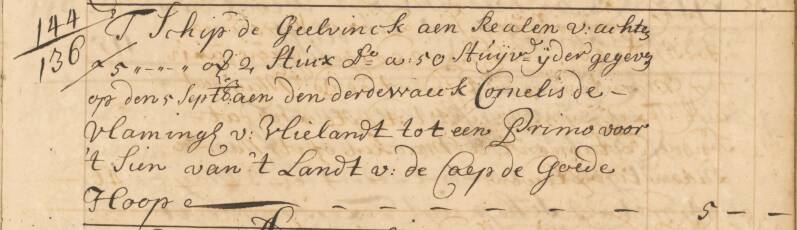 144
136
T Schip de Geelvinck aen Realen v: achte
f 5 „-„-„ of 2 Stúcx do. a: 50 Stúyvr. yder gegeven
op den 5 Septb. aen den derdewaeck Cornelis de -
Vlamingh v: Vlielandt tot een Primo voor
't Sien van 't Landt v: de Caep de Goede
Hoope — — — — — — — 5 — —